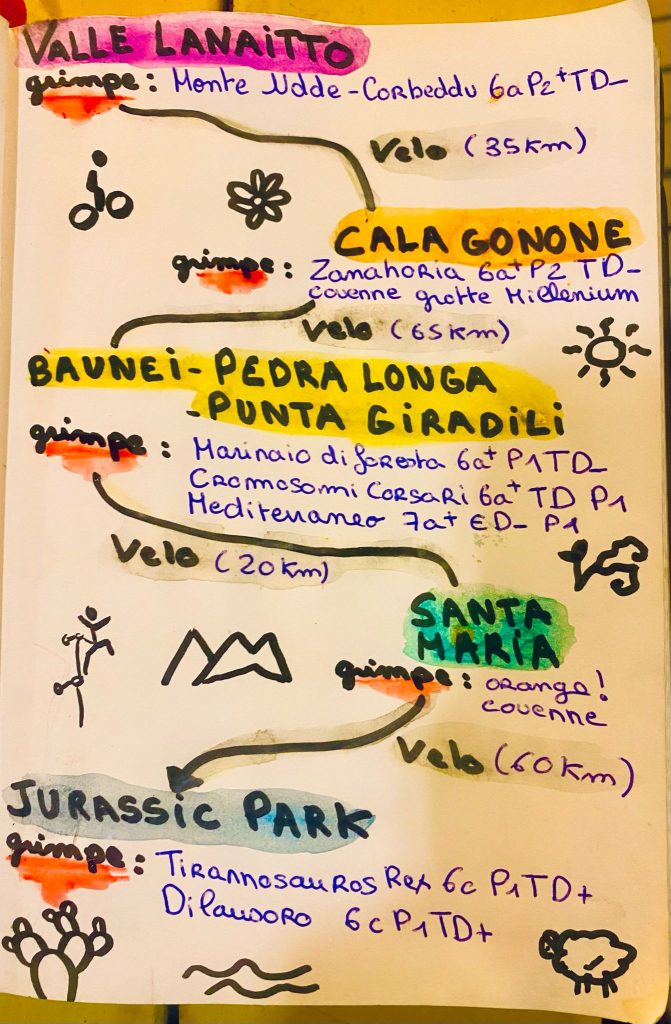 VALLE LANAITTO
grimpe : Monte Udde - Corbeddu 6a P2+ TD-
Velo (35km)
CALA GONONE
grimpe : Zanahoria 6a+ P2 TD-
couenne grotte Millenium
Velo (65km)
BAUNEI - PEDRA LONGA
- PUNTA GIRADILI
grimpe : Marinaio di foresta 6a+ P1 TD-
Cromosomi Corsari 6a+ TD P1
Mediterraneo 7a+ ED- P1
Velo (20km)
SANTA
MARIA
grimpe : orange!
couenne
Velo (60km)
JURASSIC PARK
grimpe : Tirannosauros Rex 6c P1 TD+
6c P1 TD+